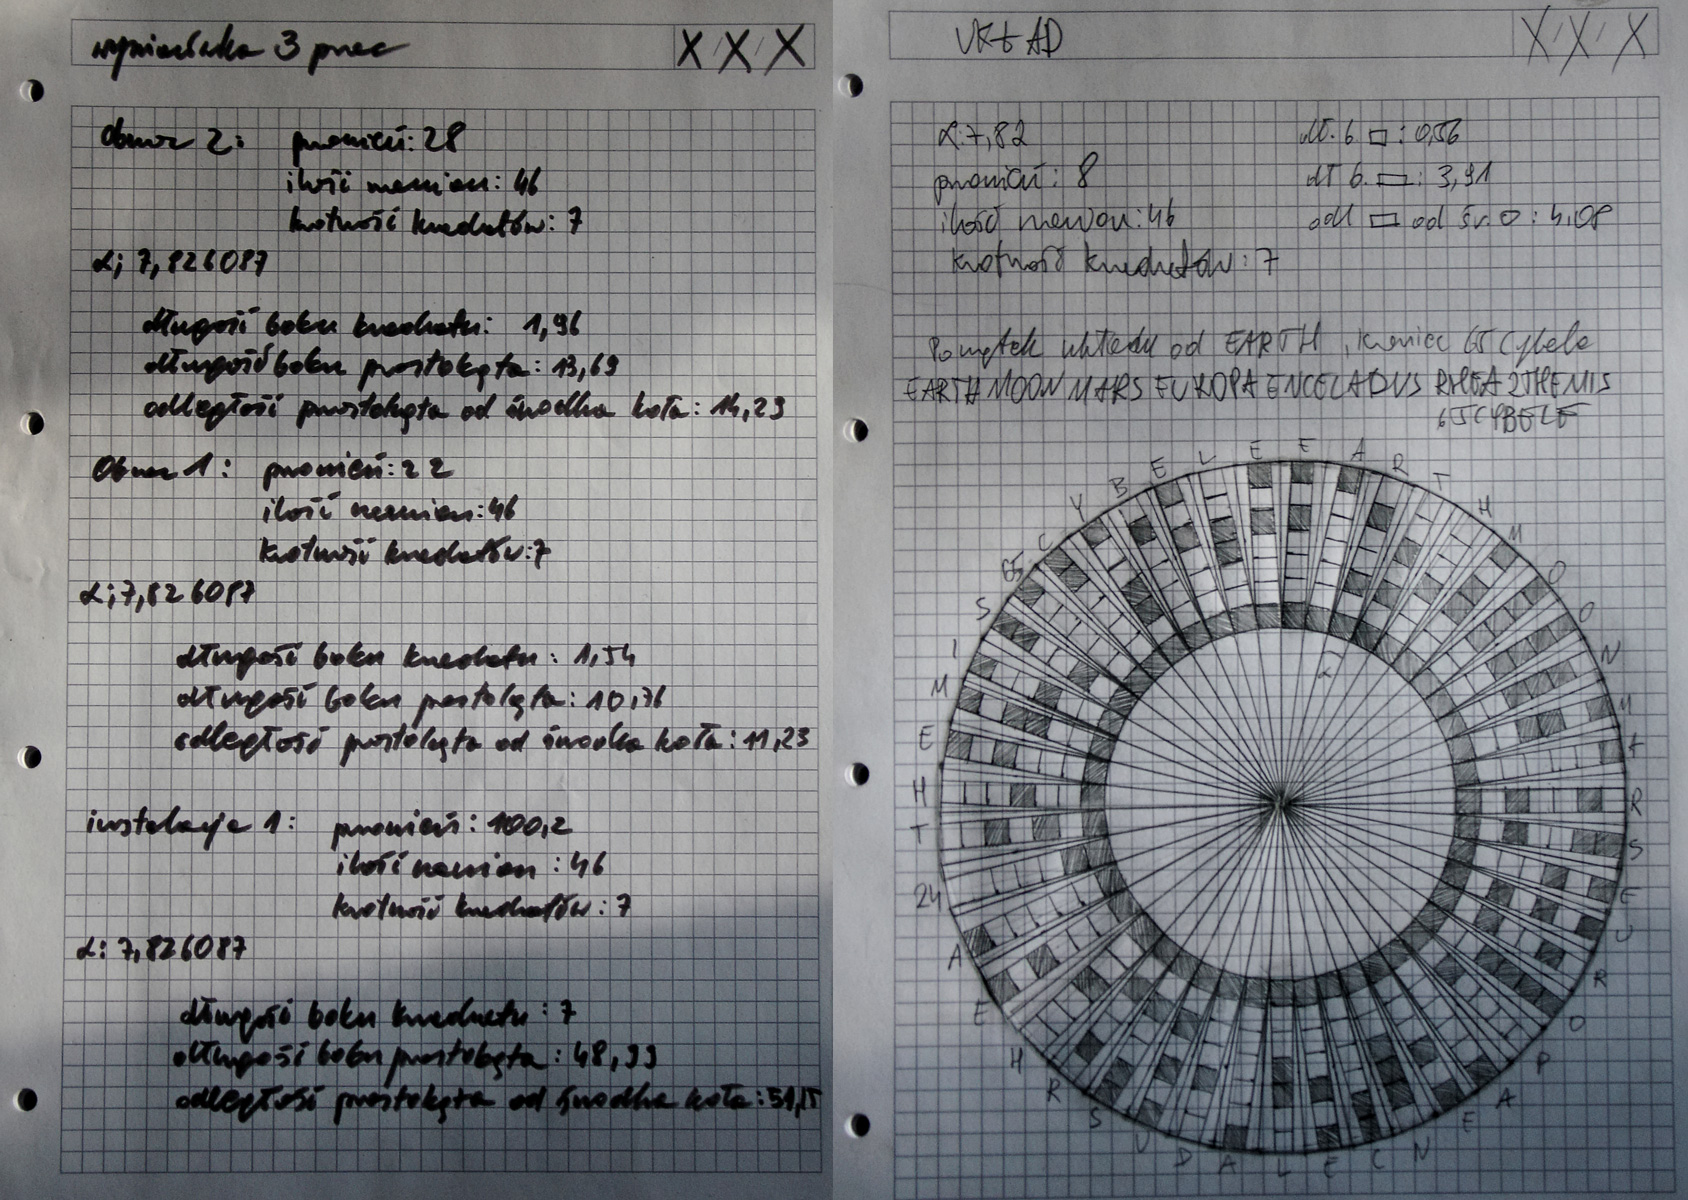 wymiarówka 3 prac
X/X/X
Obraz 2: promień: 28
ilość ramion: 46
krotność kwadratów: 7
α; 7,826087
długość boku kwadratu: 1,96
długość boku prostokąta: 13,69
odległość prostokąta od środka koła: 14,29
Obraz 1: promień: 22
ilość ramion: 46
krotność kwadratów: 7
α; 7,826087
długość boku kwadratu: 1,54
długość boku prostokąta: 10,76
odległość prostokąta od środka koła: 11,23
instalacja 1: promień: 100,2
ilość ramion: 46
krotność kwadratów: 7
α: 7,826087
długość boku kwadratu: 7
długość boku prostokąta: 48,99
odległość prostokąta od środka koła: 51,15
UKŁAD
X/X/X
α: 7,82
promień: 8
ilość ramion: 46
krotność kwadratów: 7
dł. b □: 0,56
dł b. ▭: 3,91
odl ▭ od śr. O: 4,08
Początek układu od EARTH, koniec 65 Cybele
EARTH MOON MARS EUROPA ENCELADUS RHEA 24THEMIS
65CYBELE
E A R T H M O O N M A R S E U R O P A E N C E L A D U S R H E A 24 T H E M I S 65 C Y B E L E
α